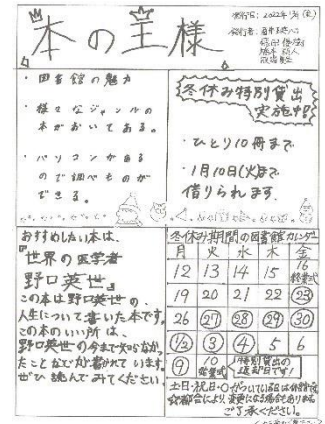 本の王様
発行日：2022年
発行者：
・図書館の魅力
・様々なジャンルの
本がおいてある。
・パソコンがある
ので調べものが
できる。
冬休み特別貸出
実施中!!
・ひとり10冊まで
・1月10日(火)まで
借りられます。
おすすめしたい本は、
『世界の医学者
野口英世』
この本は野口英世の、
人生について書いた本です。
この本のいい所は、
野口英世の今まで知らなかっ
たことなどが書かれています。
ぜひ読んでみてください。
冬休み期間の図書館カレンダー
月 火 水 木 金
12 13 14 15 16
終業式
19 20 21 22 23
26 27 28 29 30
1/2 3 4 5 6
9 10
始業式
特別貸出の
返却日です!
土日・祝日・○がついている日は休館です。
☆都合により、変更になる場合もあります。
ご了承ください。